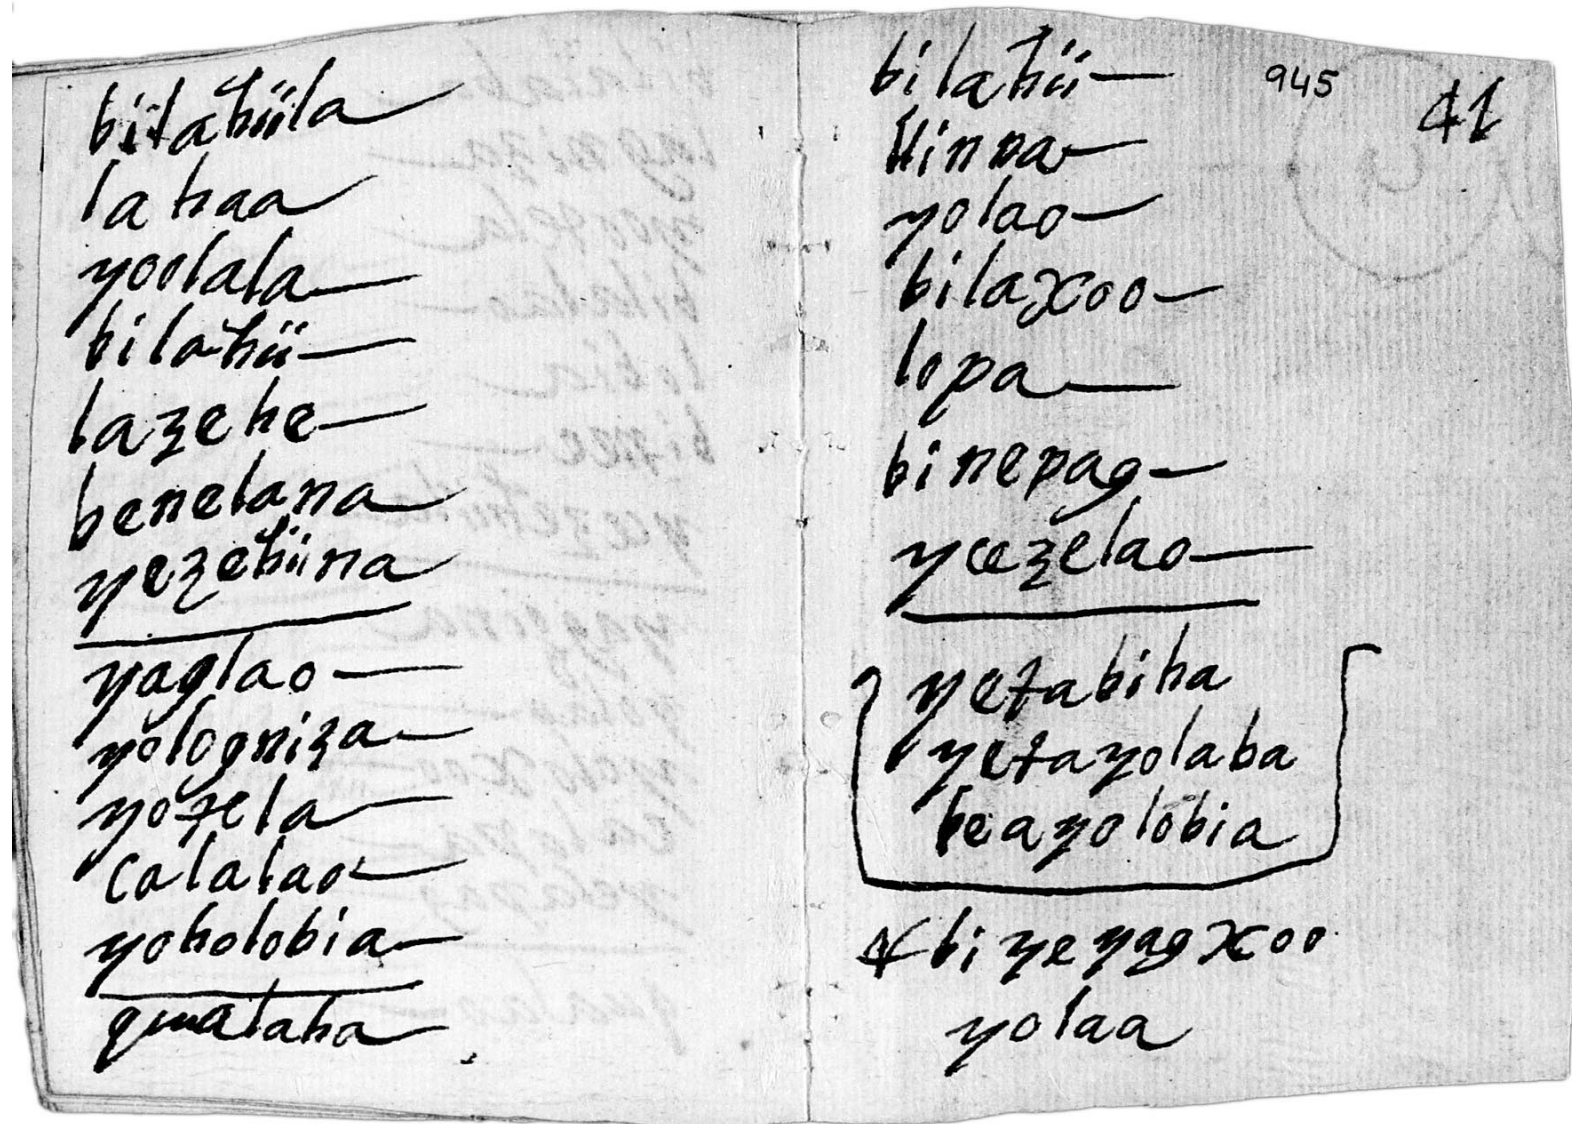 bilahüla
lahaa
yoolala
bilahü
lazehe
benelana
yezehüna
yaglao
yologniza
yozela
calalao
yoholobia
qualaha
945
41
bilahü
yolao
bilaxoo
lopa
binepag
yeezelao
yezabiha
yezayolaba
beayolobia
biyeyagxoo
yolaa